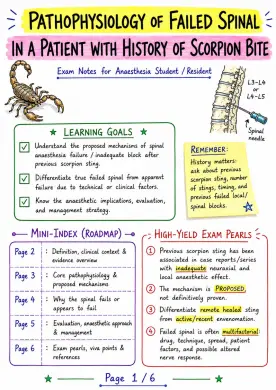 PATHOPHYSIOLOGY OF FAILED SPINAL
IN A PATIENT WITH HISTORY OF SCORPION BITE
Exam Notes for Anaesthesia Student / Resident
L3–L4
or
L4–L5
Spinal
needle
LEARNING GOALS
Understand the proposed mechanisms of spinal
anaesthesia failure / inadequate block after
previous scorpion sting.
Differentiate true failed spinal from apparent
failure due to technical or clinical factors.
Know the anaesthetic implications, evaluation,
and management strategy.
REMEMBER:
History matters:
ask about previous
scorpion sting, number
of stings, timing, and
previous failed local/
spinal blocks.
MINI-INDEX (ROADMAP)
Page 2 : Definition, clinical content &
evidence overview
Page 3 : Core pathophysiology &
proposed mechanisms
Page 4 : Why the spinal fails or
appears to fail
Page 5 : Evaluation, anaesthetic approach
& management
Page 6 : Exam pearls, viva points &
references
HIGH-YIELD EXAM PEARLS
1 Previous scorpion sting has been
associated in case reports/series
with inadequate neuraxial and
local anaesthetic effect.
2 The mechanism is PROPOSED,
not definitively proven.
3 Differentiate remote healed sting
from active/recent envenomation.
4 Failed spinal is often multifactorial
drug, technique, spread, patient
factors, and possible altered
nerve response.
Page 1 / 6